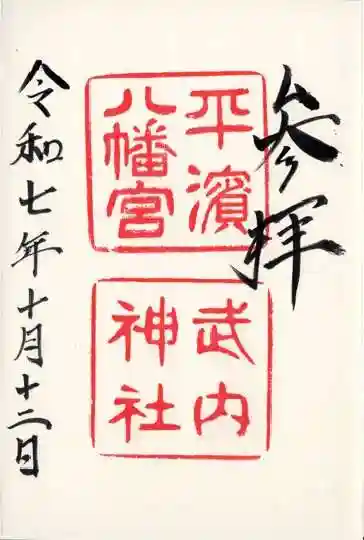 参拝
平濱
八幡宮
武内
神社
令和七年十月十二日